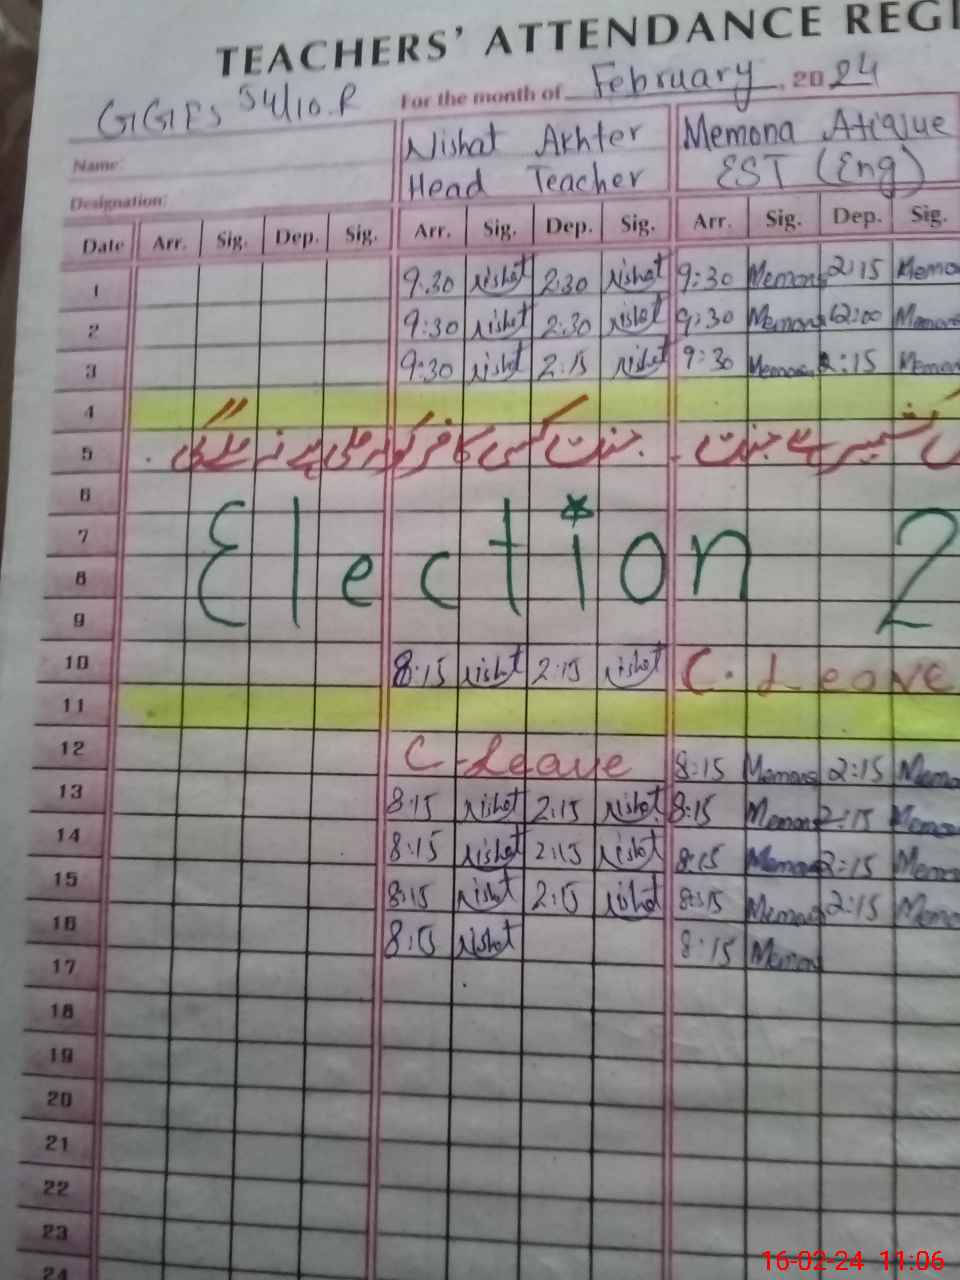 TEACHERS' ATTENDANCE REGI
For the month of February, 2024
GGPS 54/10.R
Name: Nishat Akhter Memona Atique
Designation: Head Teacher EST (Eng)
Date Arr. Sig. Dep. Sig. Arr. Sig. Dep. Sig. Arr. Sig. Dep. Sig.
1 9.30 Nishat 2:30 Nishat 9:30 Memona 2:15 Memo
2 9:30 Nishat 2:30 Nishat 9:30 Memona 12:00 Memona
3 9:30 Nishat 2:15 Nishat 9:30 Memona 2:15 Memona
4
5 کشمیر ہے جنت۔ جنت کسی کافر کو ملی ہے نہ ملے گی
6
7 Election 2
8
9
10 8:15 Nishat 2:15 Nishat C. Leave
11
12 C-Leave 8:15 Memona 2:15 Memo
13 8:15 Nishat 2:15 Nishat 8:15 Memona 2:15 Memona
14 8:15 Nishat 2:15 Nishat 8:15 Memona 2:15 Memona
15 8:15 Nishat 2:15 Nishat 8:15 Memona 2:15 Memo
16 8:15 Nishat 8:15 Memona
17
18
19
20
21
22
23
24
16-02-24 11:06